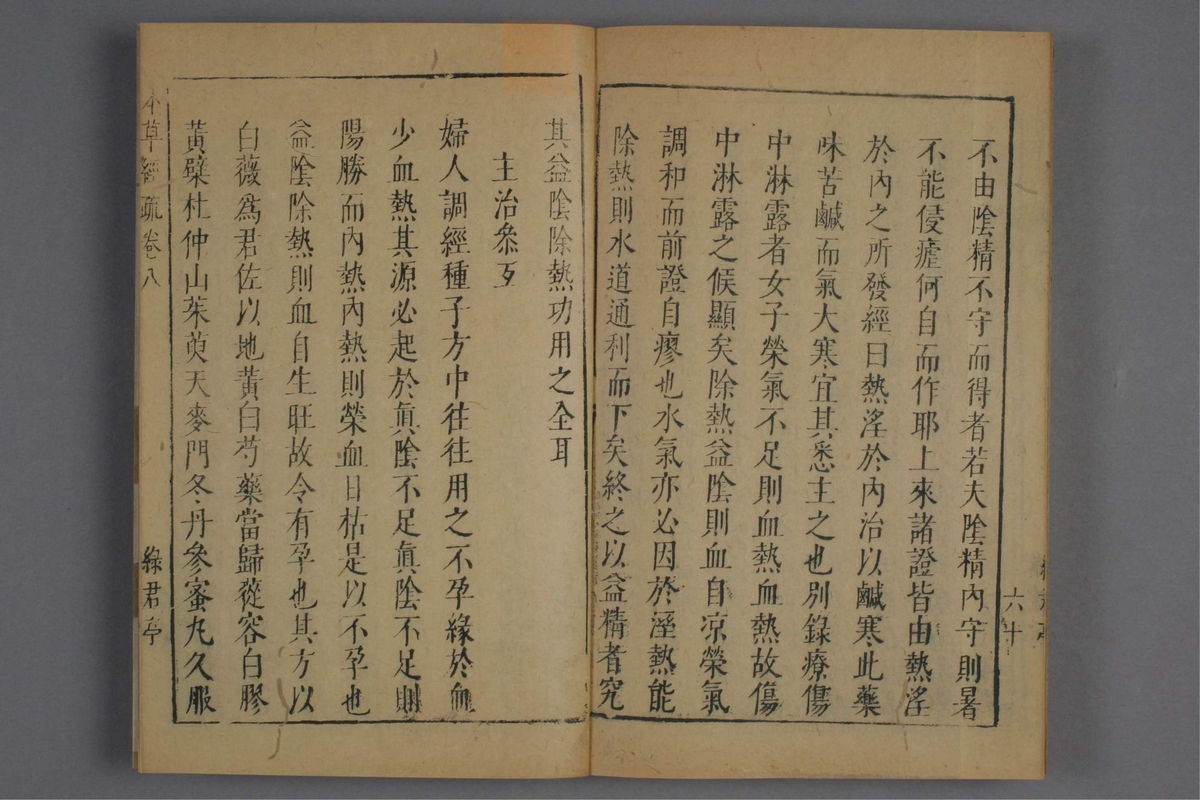 不由陰精不守而得者若夫陰精內守則暑
不能侵瘧何自而作耶上來諸證皆由熱淫
於內之所發經曰熱淫於內治以鹹寒此藥
味苦鹹而氣大寒宜其悉主之也別錄療傷
中淋露者女子榮氣不足則血熱血熱故傷
中淋露之候顯矣除熱益陰則血自凉榮氣
調和而前證自瘳也水氣亦必因於溼熱能
除熱則水道通利而下矣終之以益精者究
六十
其益陰除熱功用之全耳
主治叅互
婦人調經種子方中往往用之不孕緣於血
少血熱其源必起於眞陰不足眞陰不足則
陽勝而內熱內熱則榮血日枯是以不孕也
益陰除熱則血自生旺故令有孕也其方以
白薇爲君佐以地黃白芍藥當歸蓯容白膠
黃蘗杜仲山茱萸天麥門冬丹參蜜丸久服
本草經疏卷八
綠君亭